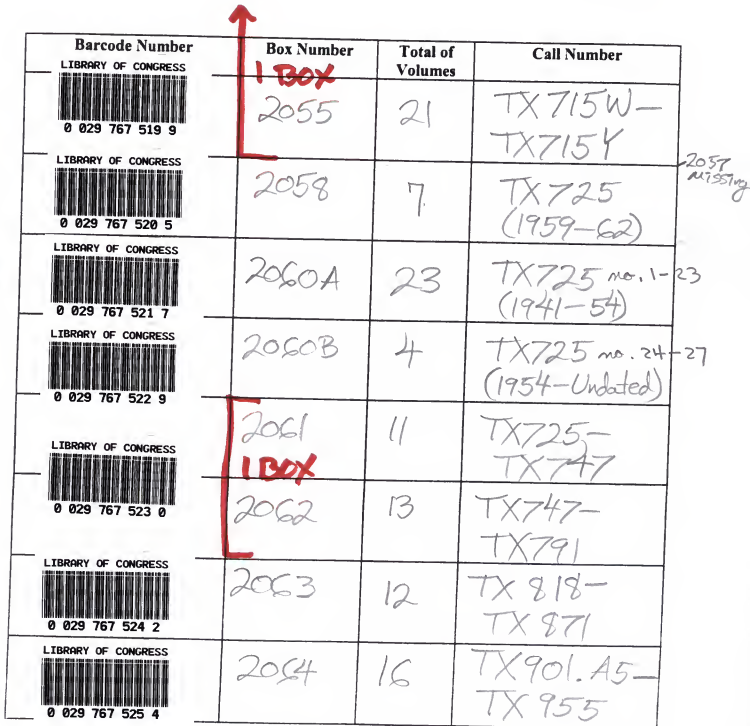 Barcode Number Box Number Total of Volumes Call Number
LIBRARY OF CONGRESS
1 BOX
0 029 767 519 9
2055 21 TX715W-
TX715Y
2057 missing
LIBRARY OF CONGRESS
0 029 767 520 5
2058 7 TX725
(1959-62)
LIBRARY OF CONGRESS
0 029 767 521 7
2060A 23 TX725 no. 1-23
(1941-54)
LIBRARY OF CONGRESS
0 029 767 522 9
2060B 4 TX725 no. 24-27
(1954-Undated)
LIBRARY OF CONGRESS
0 029 767 523 0
2061 11 TX725-
TX747
1 BOX
2062 13 TX747-
TX791
LIBRARY OF CONGRESS
0 029 767 524 2
2063 12 TX 818-
TX 871
LIBRARY OF CONGRESS
0 029 767 525 4
2064 16 TX901.A5-
TX 955